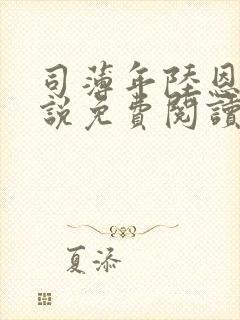 司薄年陸恩
說免費閱讀
夏添